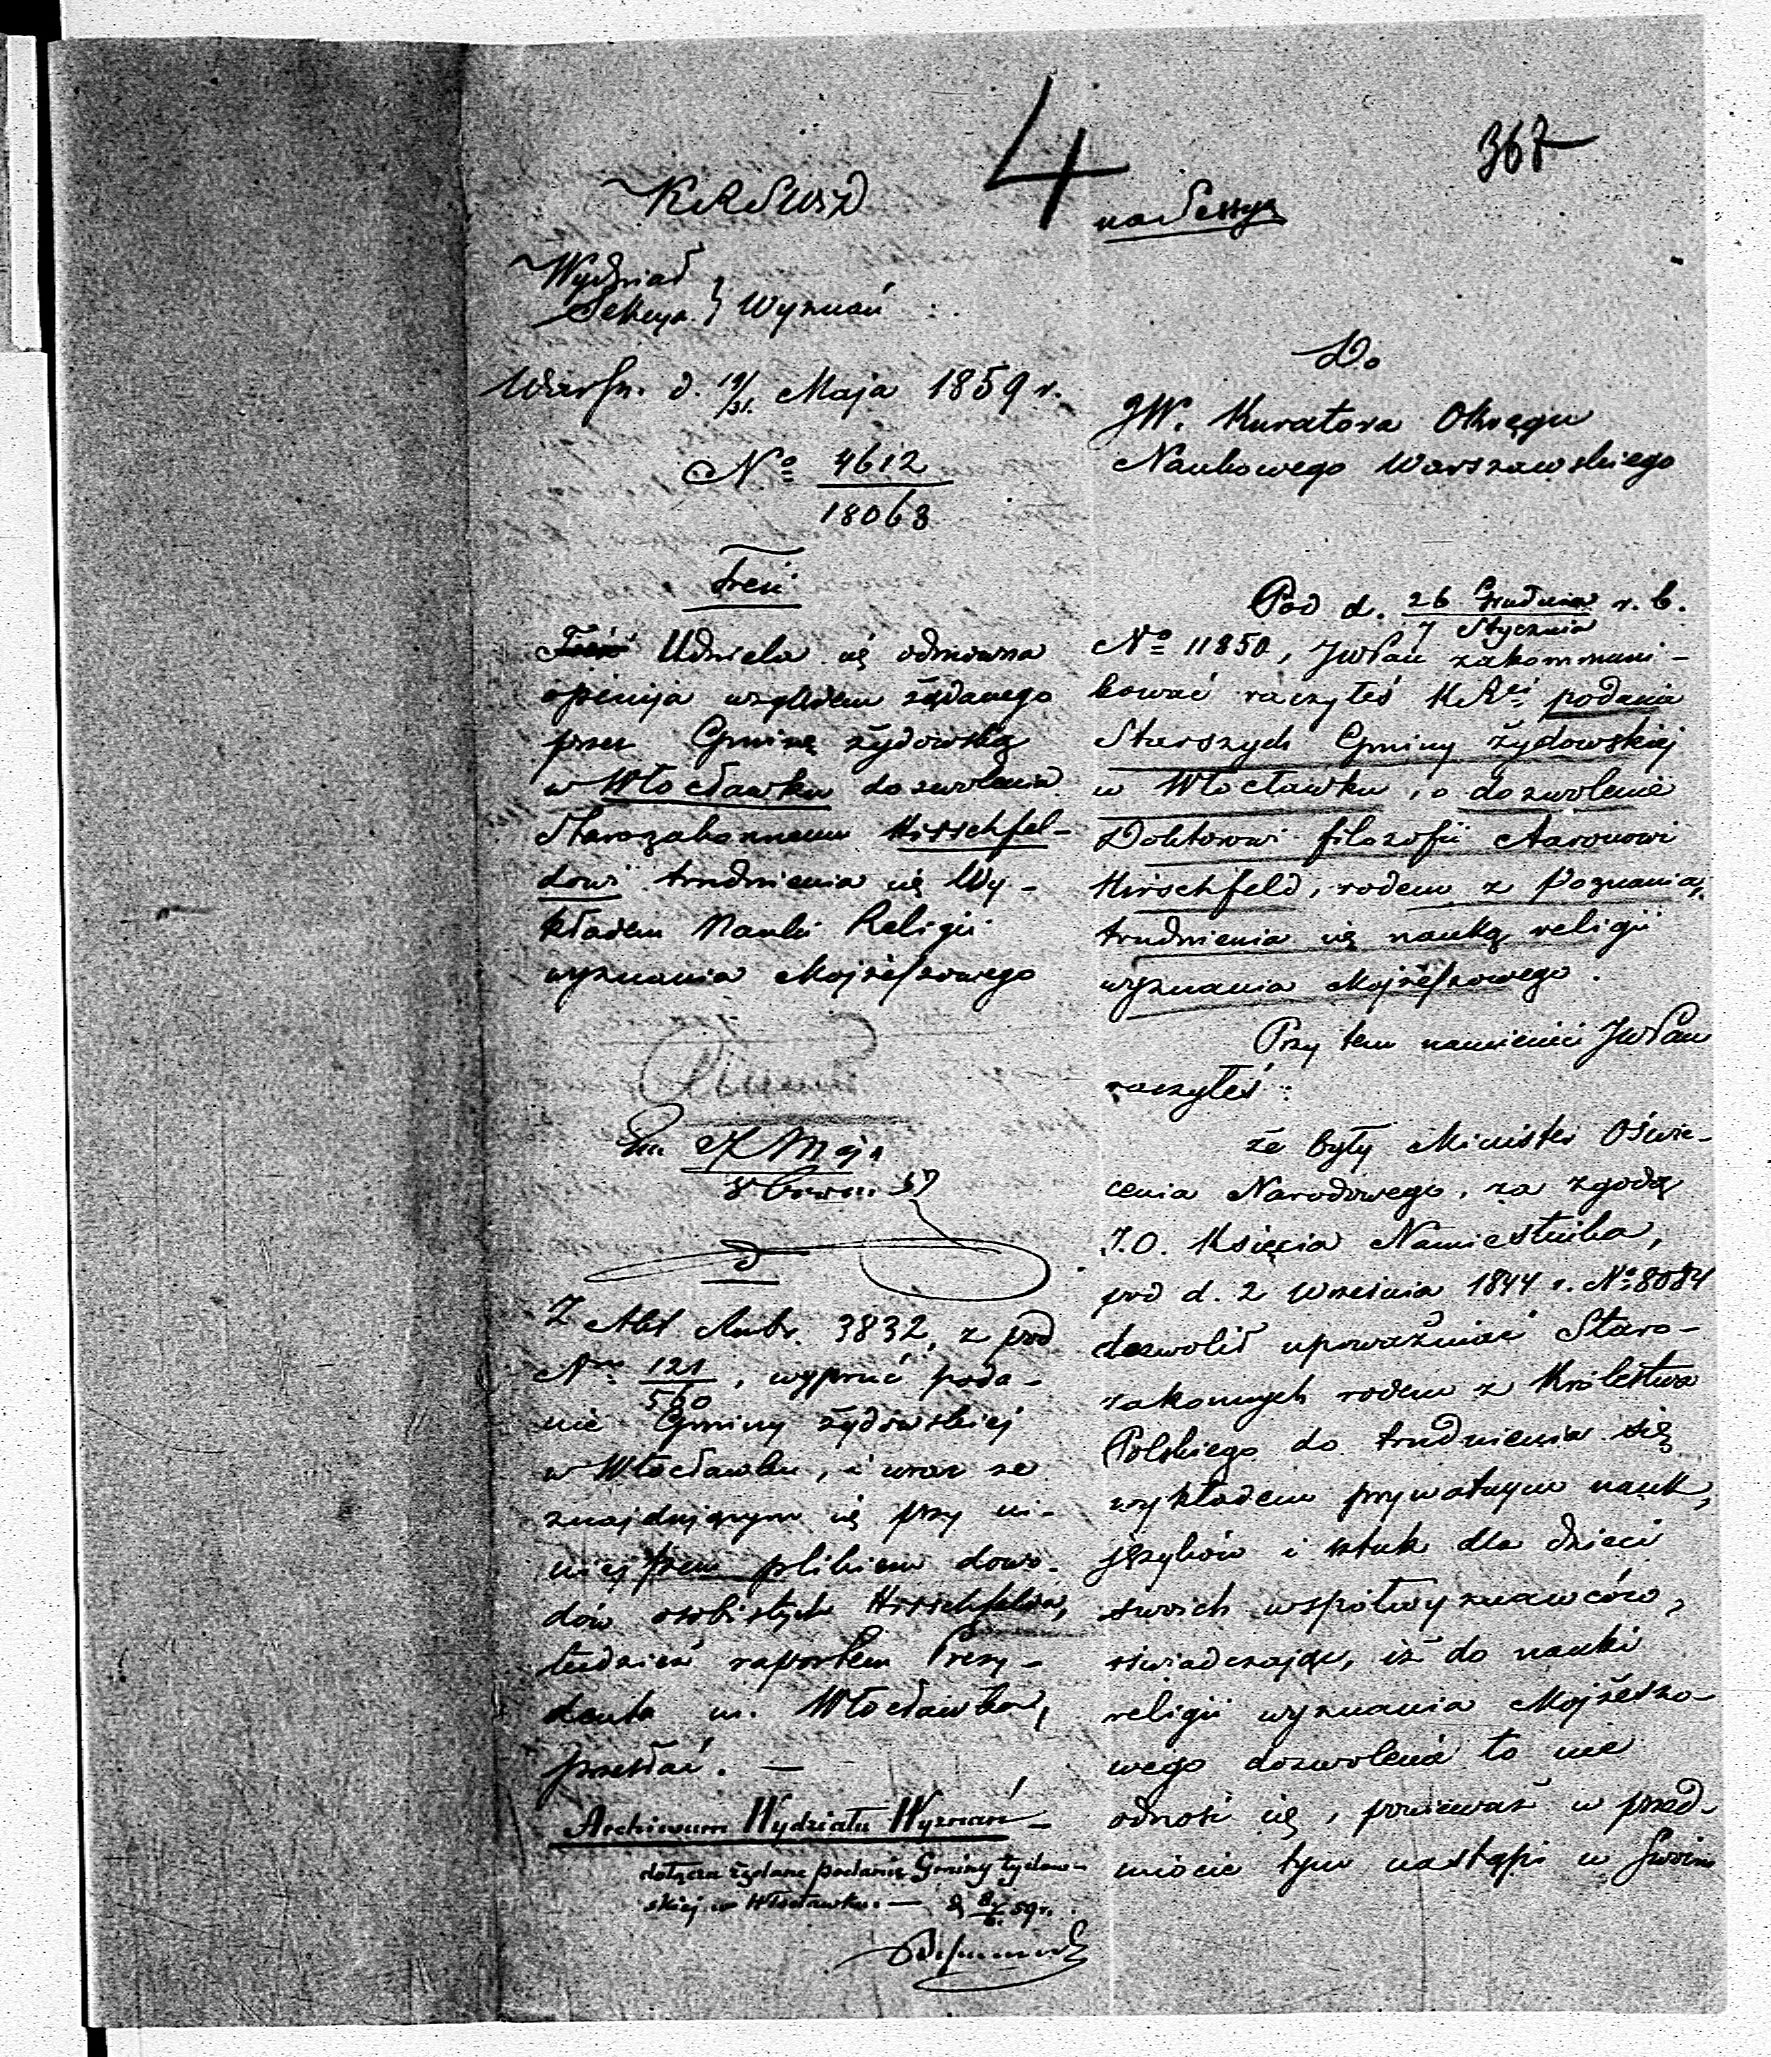 4
367
na Sessyą
KRSWiD
Wydział
Sekcya } Wyznań
Warsz. d. 19/31. Maja 1859 r.
No 4612
18063
Treść
Udziela się odmowna
opinija względem żądanego
przez Gminę żydowską
w Włocławku dozwolenia
Starozakonnemu Hirschfel-
dowi trudnienia się Wy-
kładem Nauki Religii
wyznania Mojżeszowego
Maja
Z Akt Numr. 3832, z pod
Nru 121/560, wypruć poda-
nie Gminy żydowskiej
w Włocławku, i wraz ze
znajdującym się przy ni-
niejszem plikiem dowo-
dów osobistych Hirschfelda,
tudzież raportem Prezy-
denta m. Włocławka,
przesłać. —
Archiwum Wydziału Wyznań —
dołącza żądane podanie Gminy żydow-
skiej w Włocławku. — 59 r.
Do
JW. Kuratora Okręgu
Naukowego Warszawskiego
Pod d. 26 Grudnia/7 Stycznia r. b.
No 11850, JWPan zakommuni-
kować raczyłeś KRci podania
Starszych Gminy żydowskiej
w Włocławku, o dozwolenie
Doktorowi filozofii Aaronowi
Hirschfeld, rodem z Poznania,
trudnienia się nauką religii
wyznania Mojżeszowego.
Przy tem namienić JWPan
raczyłeś:
że były Minister Oświe-
cenia Narodowego, za zgodą
J.O. Księcia Namiestnika,
pod d. 2 Września 1844 r. No 8084
dozwolił upoważniać Staro-
zakonnych rodem z Królestwa
Polskiego do trudnienia się
wykładem prywatnym nauk,
języków i sztuk dla dzieci
swoich współwyznawców,
oświadczając, iż do nauki
religii wyznania Mojżeszo-
wego dozwolenie to nie
odnosi się, ponieważ w przed-
miocie tym nastąpi w swoim